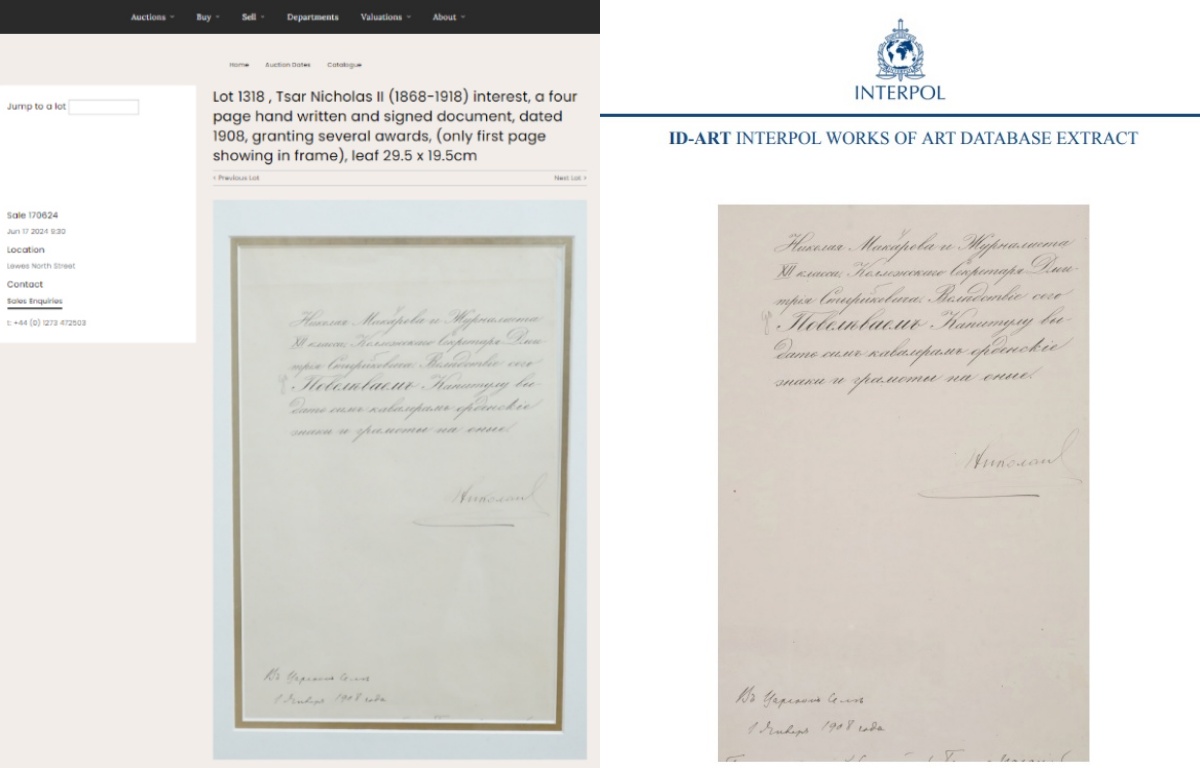 Auctions
Buy
Sell
Departments
Valuations
About
Home
Auction Dates
Catalogue
Jump to a lot
Lot 1318 , Tsar Nicholas II (1868-1918) interest, a four
page hand written and signed document, dated
1908, granting several awards, (only first page
showing in frame), leaf 29.5 x 19.5cm
‹ Previous Lot
Next Lot ›
Sale 170624
Jun 17 2024 9:30
Location
Lewes North Street
Contact
Sales Enquiries
t: +44 (0) 1273 472503
Николая Макарова и Журналиста
XII класса, Коллежскаго Секретаря Дми-
трія Вслѣдствіе сего
Повелѣваемъ Капитулу вы-
дать симъ кавалерамъ орденскіе
знаки и грамоты на оные.
Николай
Въ Царскомъ Селѣ
1 Января 1908 года
INTERPOL
ID-ART INTERPOL WORKS OF ART DATABASE EXTRACT
Николая Макарова и Журналиста
XII класса, Коллежскаго Секретаря Дми-
трія Вслѣдствіе сего
Повелѣваемъ Капитулу вы-
дать симъ кавалерамъ орденскіе
знаки и грамоты на оные.
Николай
Въ Царскомъ Селѣ
1 Января 1908 года